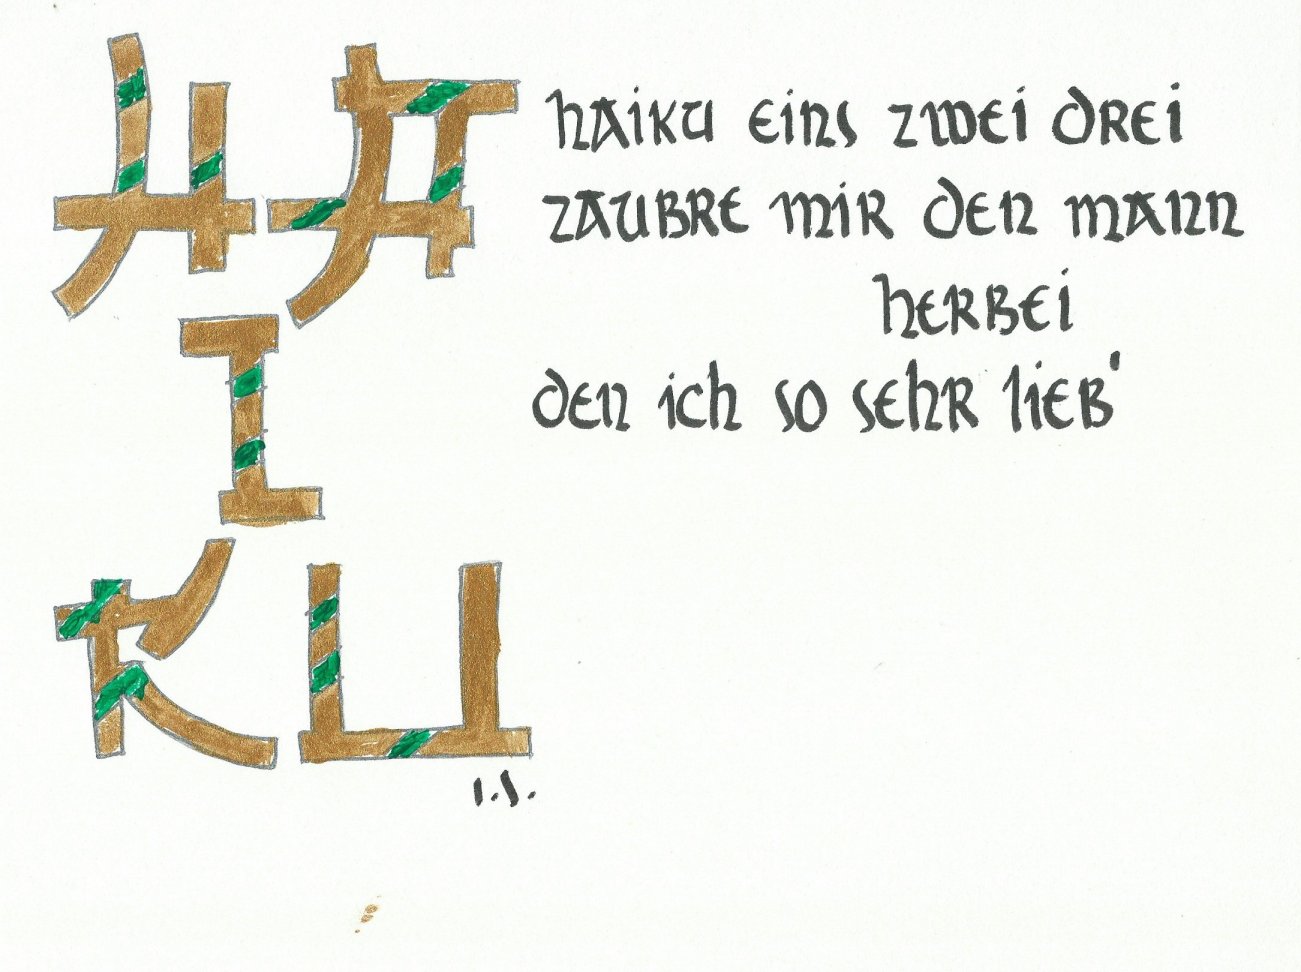 HA
I
KU
haiku eins zwei drei
zaubre mir den mann
herbei
den ich so sehr lieb'
I.S.